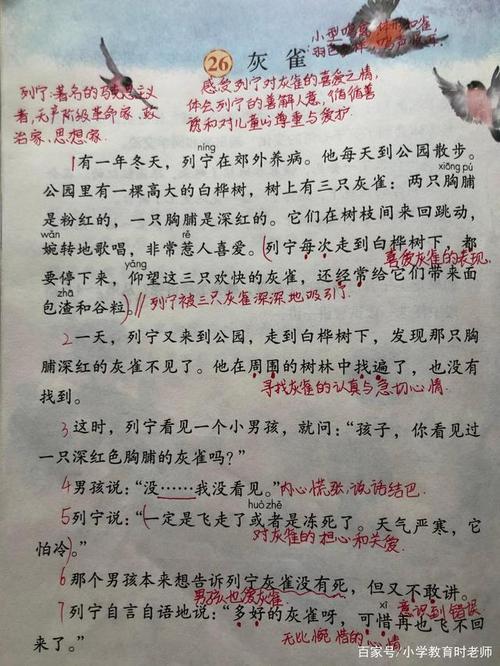 小型鸣禽
26 灰雀
列宁:著名的马克思主义
者,无产阶级革命家、政
治家、思想家
感受列宁对灰雀的喜爱之情,
体会列宁的善解人意,循循善
诱和对儿童的尊重与爱护
níng
1有一年冬天，列宁在郊外养病。他每天到公园散步。
xiōng pú
公园里有一棵高大的白桦树，树上有三只灰雀：两只胸脯
是粉红的，一只胸脯是深红的。它们在树枝间来回跳动，
wǎn rě
婉转地歌唱，非常惹人喜爱。(列宁每次走到白桦树下，都
喜爱灰雀的表现
yǎng
要停下来，仰望这三只欢快的灰雀，还经常给它们带来面
zhā
包渣和谷粒)。//列宁被三只灰雀深深地吸引了
2一天，列宁又来到公园，走到白桦树下，发现那只胸
脯深红的灰雀不见了。他在周围的树林中找遍了，也没有
找到。
寻找灰雀的认真与急切心情
3这时，列宁看见一个小男孩，就问：“孩子，你看见过
一只深红色胸脯的灰雀吗？”
4男孩说：“没……我没看见。”内心慌张,说话结巴
huò zhě
5列宁说：“(一定是飞走了或者是冻死了。天气严寒，它
怕冷)。”
对灰雀的担心和关爱
6那个男孩本来想告诉列宁灰雀没有死，但又不敢讲。
男孩也爱灰雀
意识到错误
xī
7列宁自言自语地说：“多好的灰雀呀，可惜再也飞不回
来了。”
无比惋惜的心情
百家号/小学教育时老师